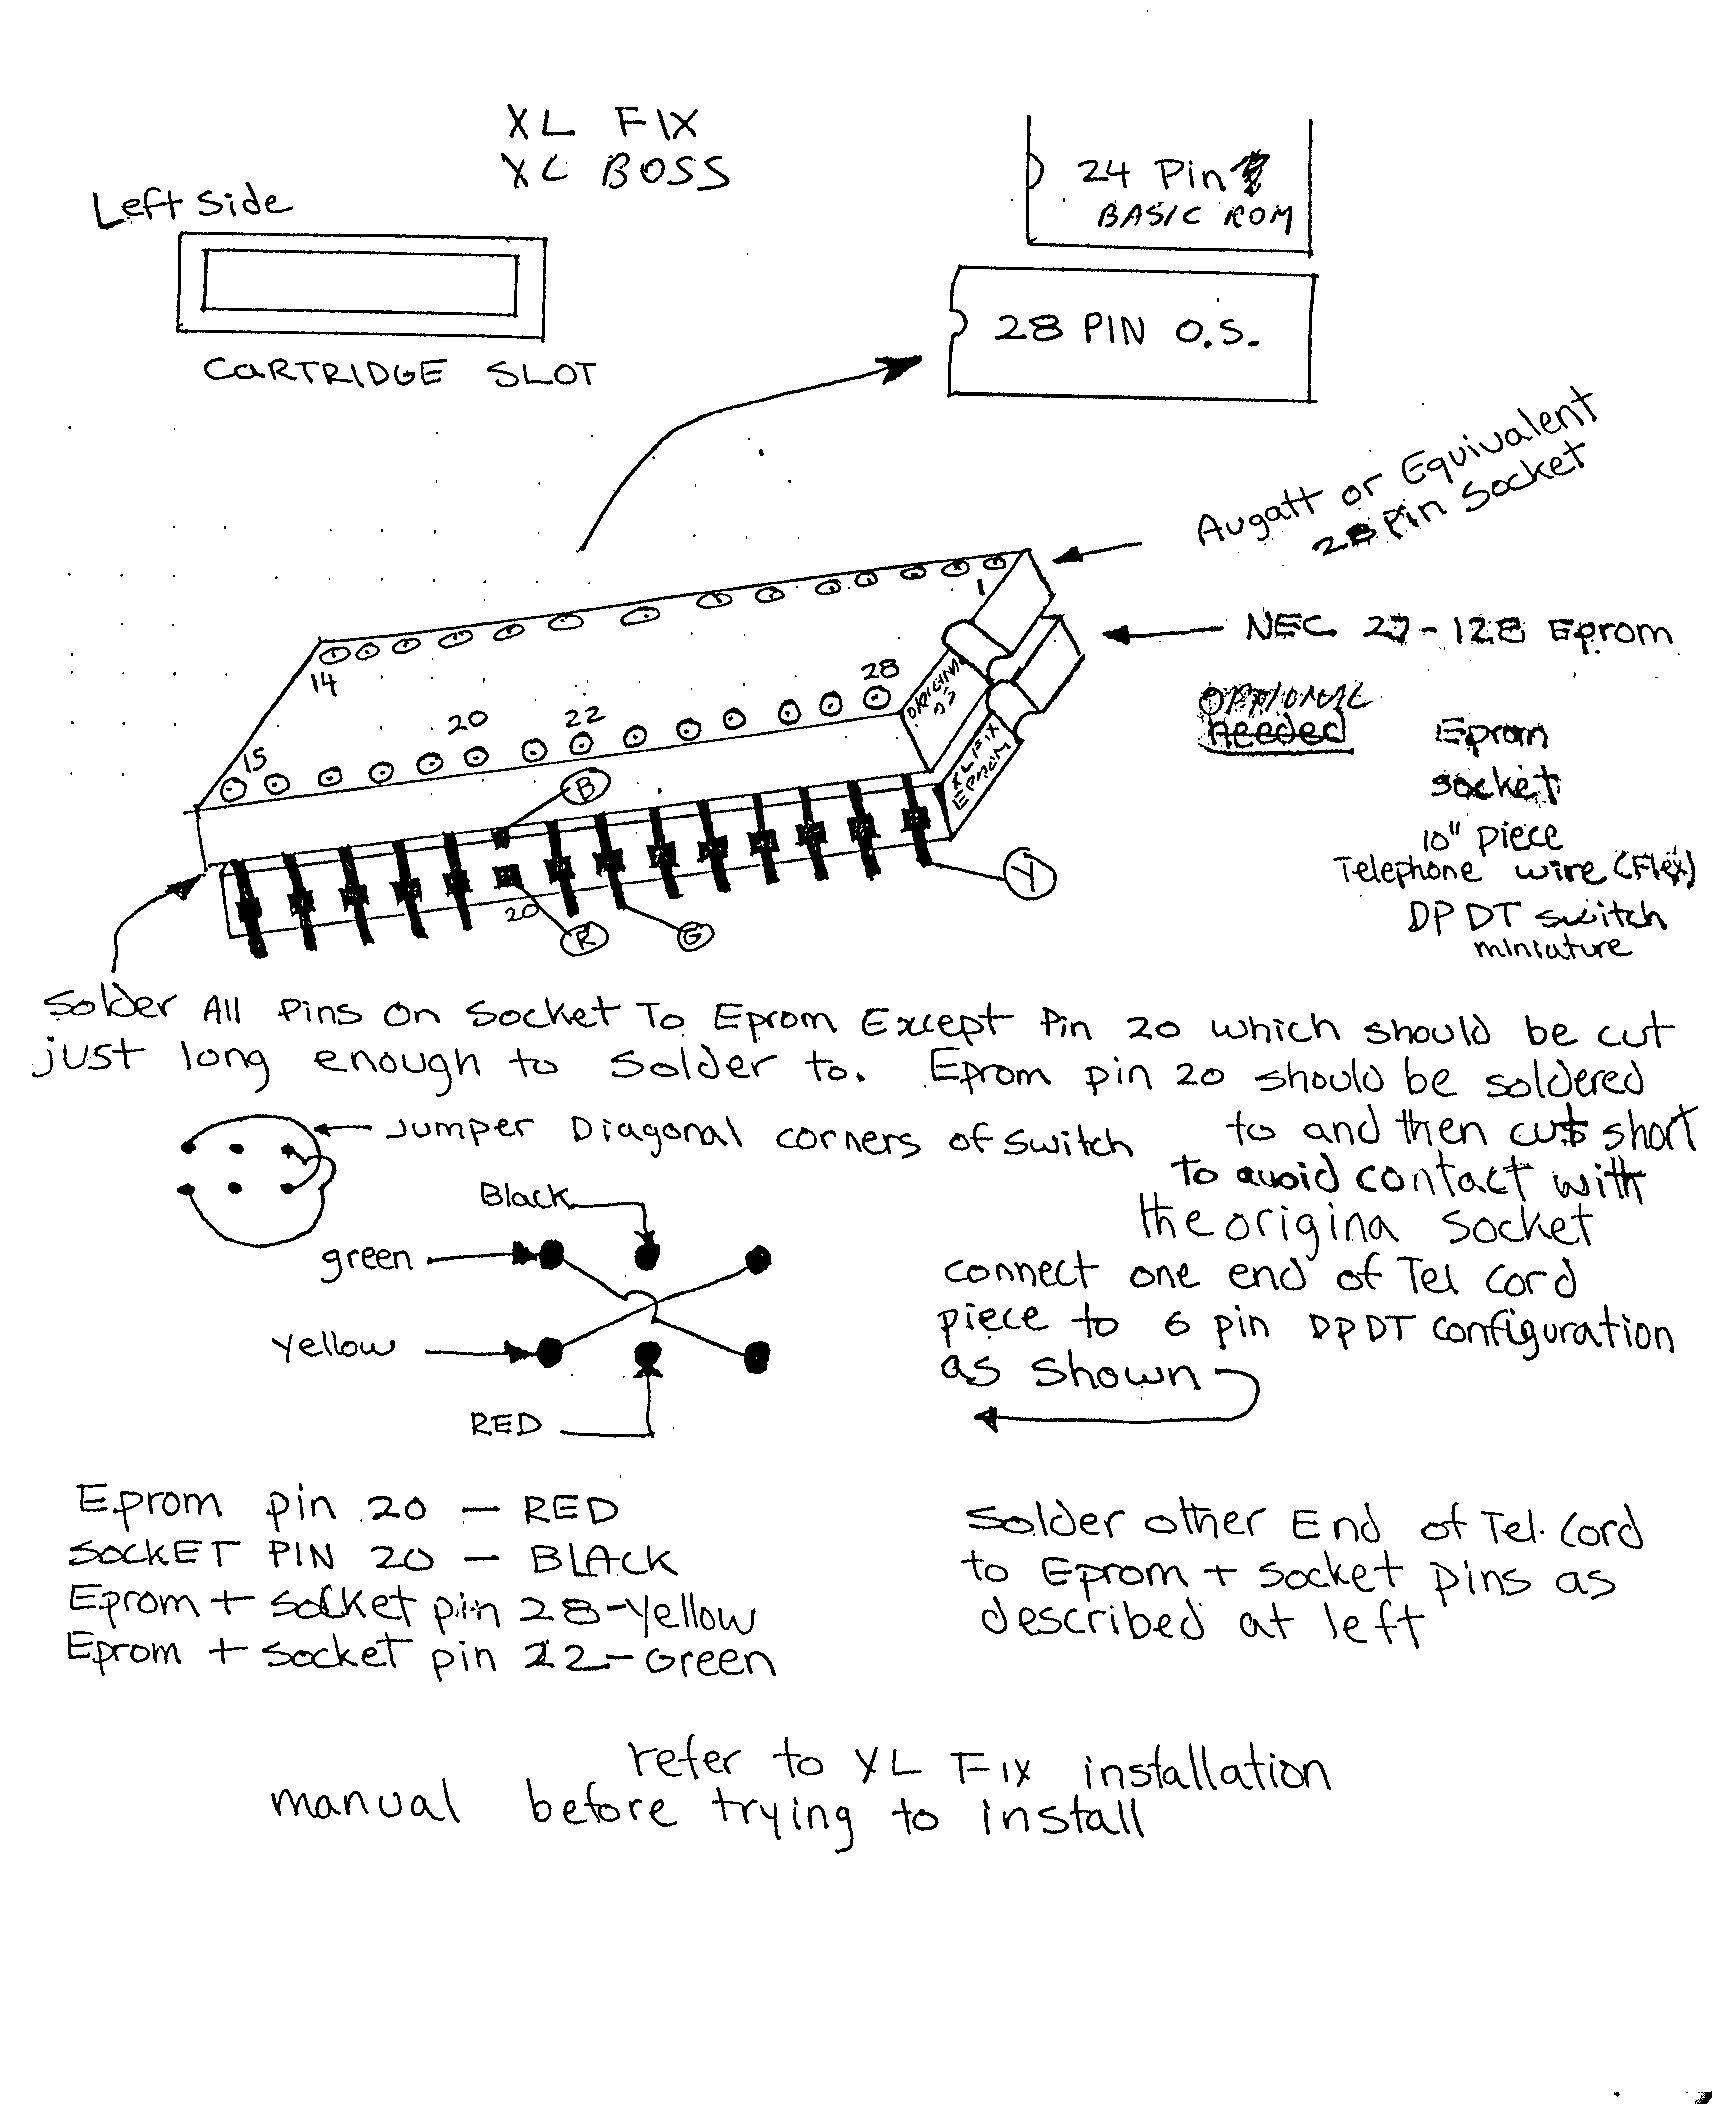 XL FIX
XL BOSS
Left Side
CARTRIDGE SLOT
24 Pin
BASIC ROM
28 PIN O.S.
Augatt or Equivalent
28 Pin Socket
NEC 27-128 Eprom
OPTIONAL
needed
Eprom
socket
10" piece
Telephone wire (Flex)
DPDT switch
miniature
1
14
28
22
20
15
ORIGINAL
OS
XL FIX
EPROM
B
Y
20
R
G
Solder All Pins On Socket To Eprom Except Pin 20 which should be cut
just long enough to solder to. Eprom pin 20 should be soldered
to and then cut short
to avoid contact with
the origina socket
Jumper Diagonal corners of switch
Black
green
yellow
RED
connect one end of Tel cord
piece to 6 pin DPDT configuration
as shown
Eprom pin 20 - RED
SOCKET PIN 20 - BLACK
Eprom + socket pin 28-yellow
Eprom + socket pin 22-Green
Solder other End of Tel. Cord
to Eprom + socket pins as
described at left
refer to XL FIX installation
manual before trying to install